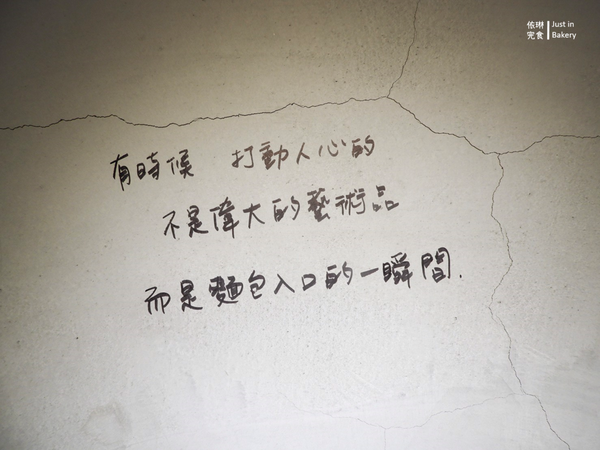 依琳 Just in
完食 Bakery
有時候 打動人心的
不是偉大的藝術品
而是麵包入口的一瞬間.